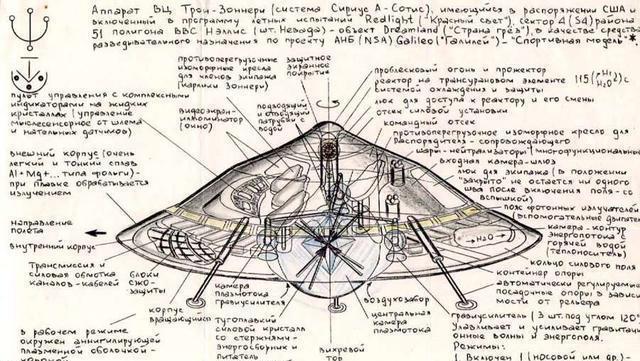 Аппарат ВЦ Трон-Зоннери (система Сириус А-Сотис), имеющийся в распоряжении США и
включенный в программу летных испытаний Redlight ("Красный свет"), сектор 4 (S4) района
51 полигона ВВС Нэллис (шт. Невада) - объект Dreamland ("Страна грёз"), в качестве средства
разведывательного назначения по проекту АНБ (NSA) Galileo ("Галилей") - "Спортивная модель"*
противоперегрузочные
изоморфные кресла
для членов экипажа
(карлики Зоннери)
защитное
экранное
покрытие
проблесковый огонь и прожектор
реактор на трансурановом элементе 115
системой охлаждения и защиты
люк для доступа к реактору и его смены
отсек силовой установки
командный отсек
противоперегрузочное изоморфное кресло для
Распорядителя - сопровождающего
шары-нейтрализаторы (многофункциональные)
входная камера-шлюз
люк для экипажа (в положении
"закрыто" не остается ни одного
шва после включения поля - со
вспышкой)
пояс фотонных излучателей
(вспомогательные двигатели
камера-контур
энергопотока
горячей водой
(теплоноситель)
кольцо силового поля
контейнер опоры
автоматически регулируемые
посадочные опоры в зависи-
мости от рельефа
гравиусилитель (3 шт. под углом 120°
Улавливает и усиливает гравитаци-
онные волны и энергополя.
Режимы:
1 Включен 1 (носовой или др.) -
пульт управления с комплексными
индикаторами на жидких
кристаллах (управление
от шлема
и нательных датчиков)
видеоэкран-
иллюминатор
(окно)
подходящий
и отводящий
патрубки с
водой
внешний корпус (очень
легкий и тонкий сплав
Al+Mg+... типа фольги) -
при плавке обрабатывается
излучением
направление
полёта
внутренний корпус
→H₂O→
Трансмиссия и
силовая обмотка
каналов-кабелей
блоки
СЖО-
защиты
корпус
вращающийся
камера
плазмотока
гравиусилителя
тугоплавкий
силовой кристалл
со стержнями-
энергосборник и
питатель
воздухозабор
центральная
камера
плазмотока
вихревой
ток
в рабочем режиме
окружен аннигилирующей
плазменной оболочкой-